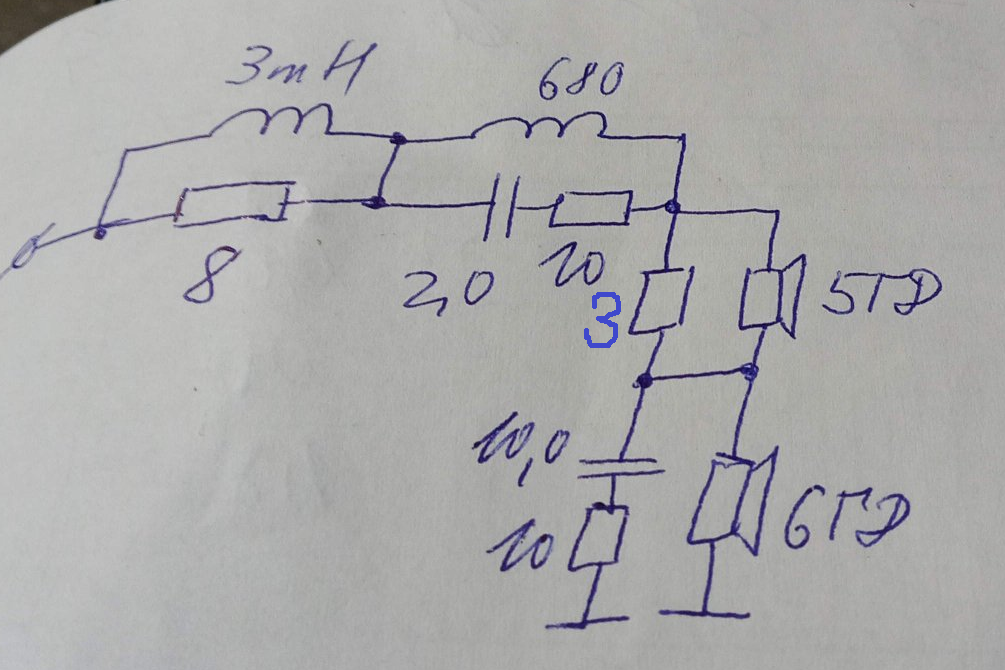 3mH
680
8
2,0
10
3
5ГД
10,0
10
6ГД